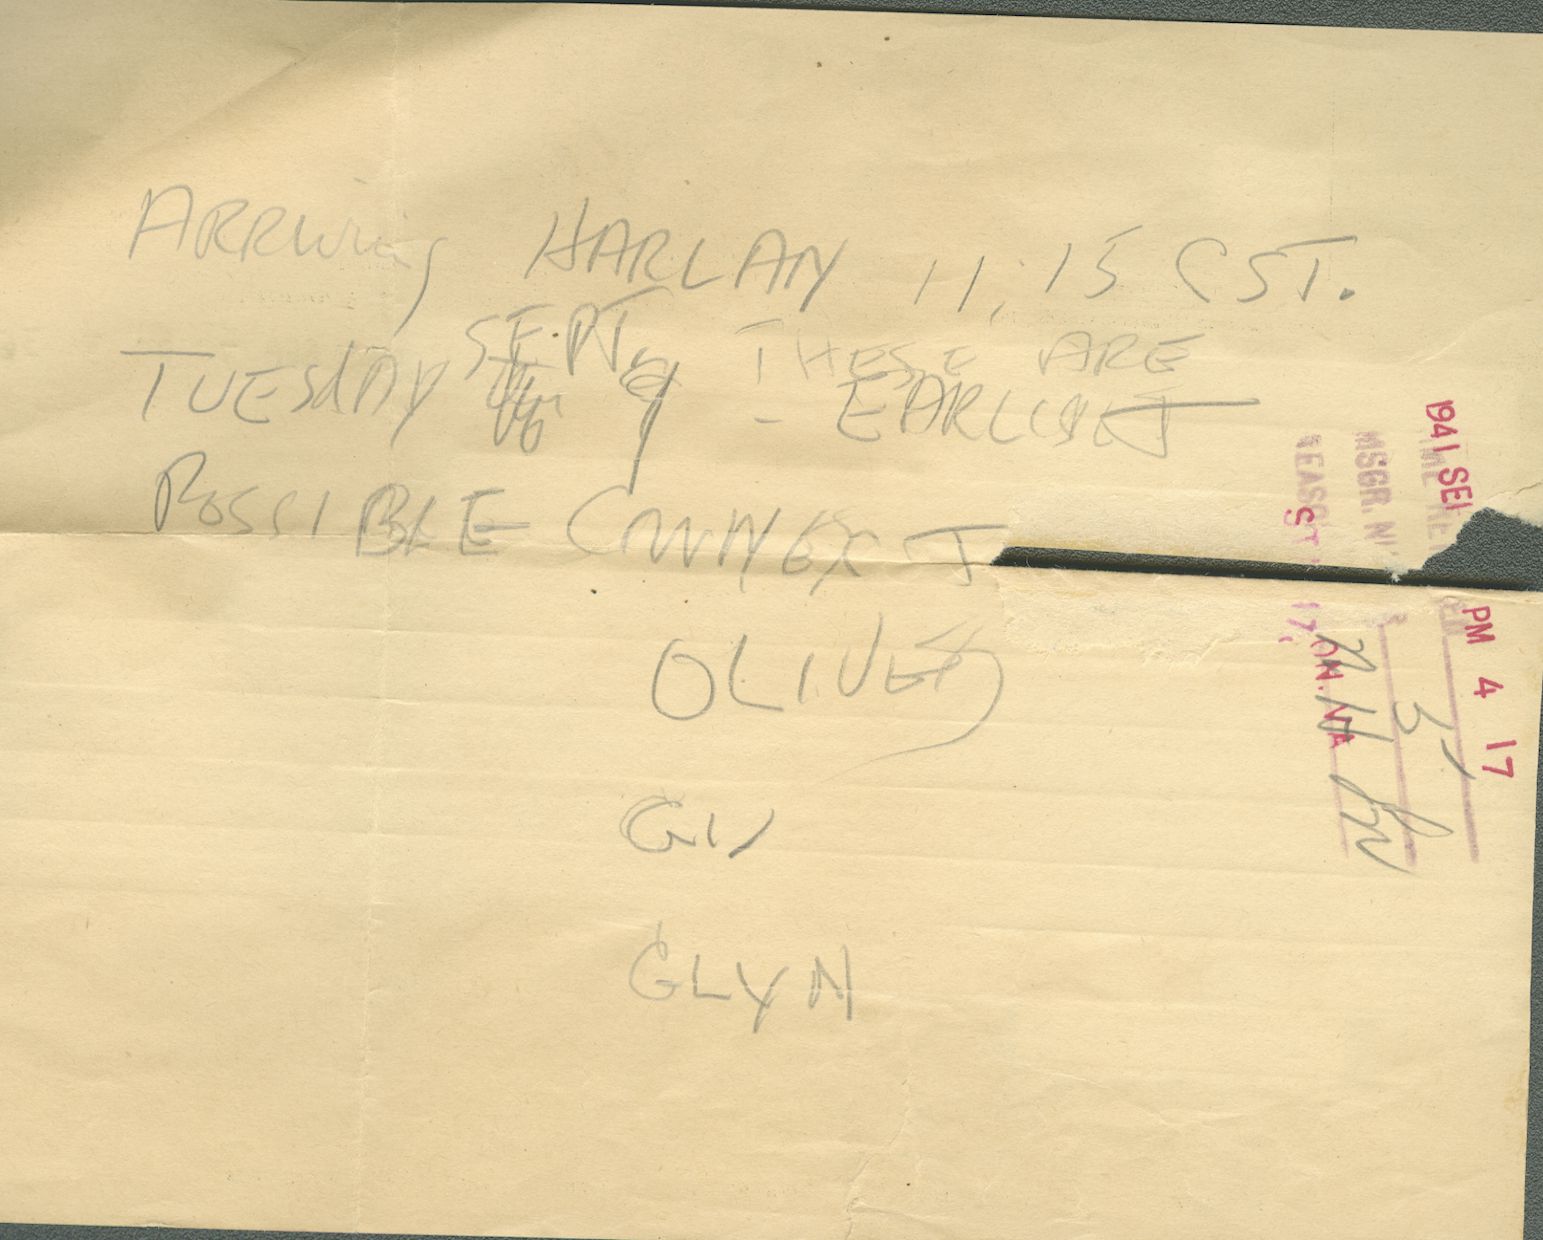 ARRIVING HARLAN 11:15 CST.
TUESDAY SEPT, 9 - THESE ARE
EARLIEST
POSSIBLE CONNEXT
OLIVER
GLYN
1941 SEP PM 4 17
MSGR. N